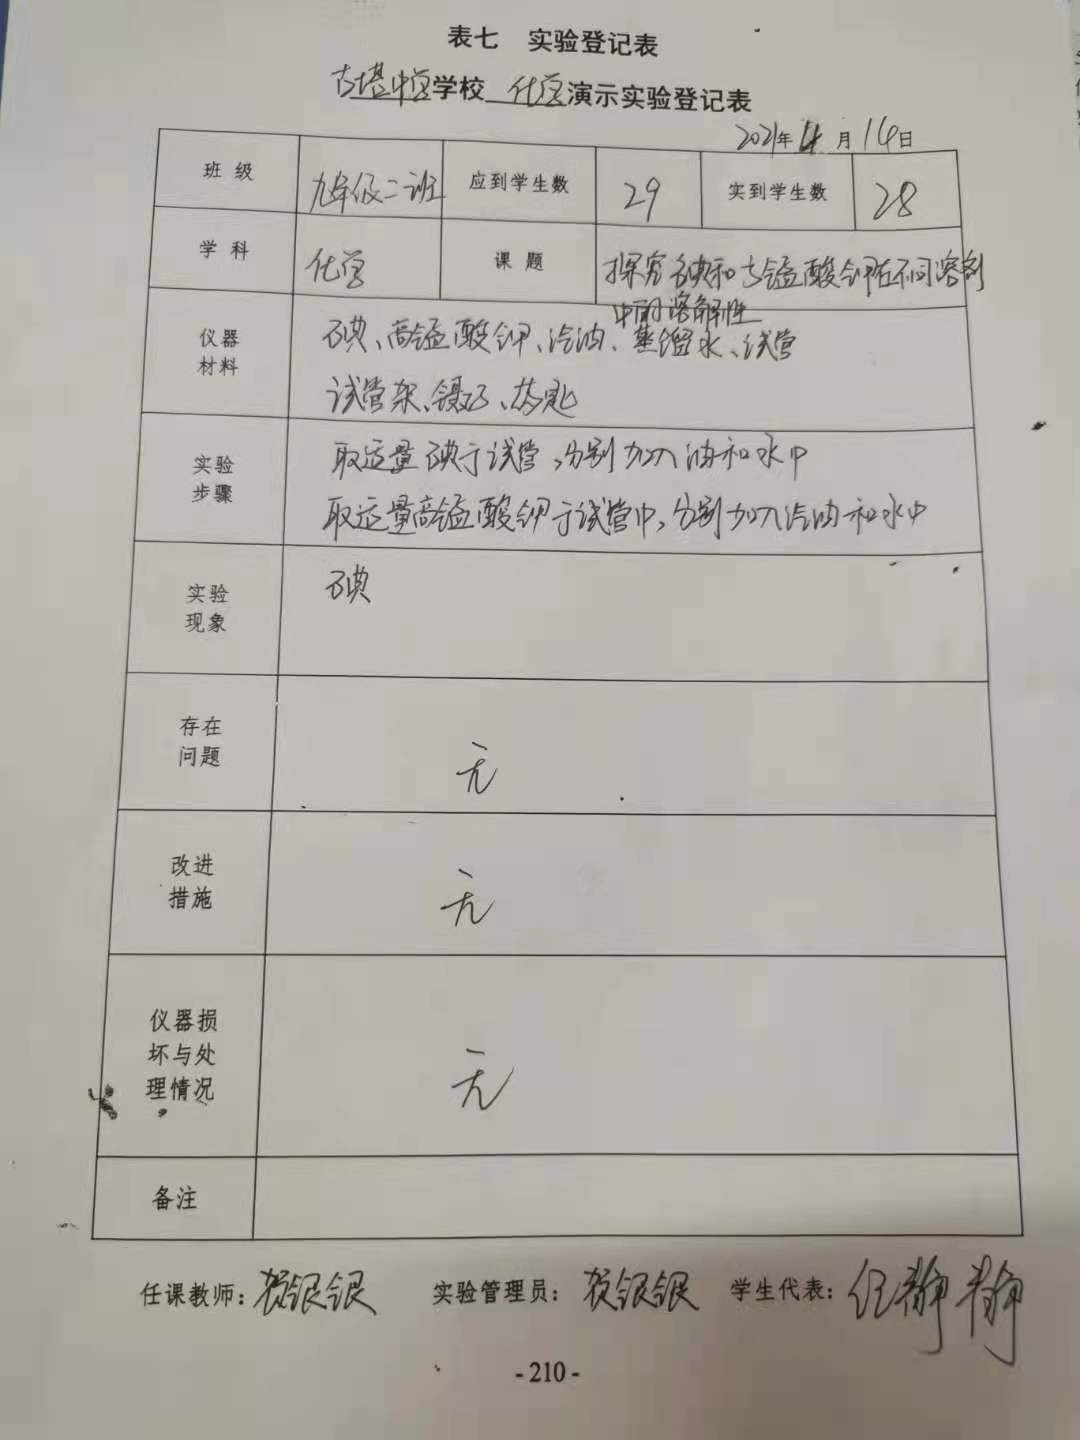 表七 实验登记表
古塔中学学校 化学演示实验登记表
2021年4月14日
班级 九年级二班 应到学生数 29 实到学生数 28
学科 化学 课题 探究碘和高锰酸钾在不同溶剂
中的溶解性
仪器
材料
碘、高锰酸钾、汽油、蒸馏水、试管
试管架、镊子、药匙
实验
步骤
取适量碘于试管,分别加入油和水中
取适量高锰酸钾于试管中,分别加入汽油和水中
实验
现象
碘
存在
问题
无
改进
措施
无
仪器损
坏与处
理情况
无
备注
任课教师:贺银银 实验管理员:贺银银 学生代表:任静静
-210-